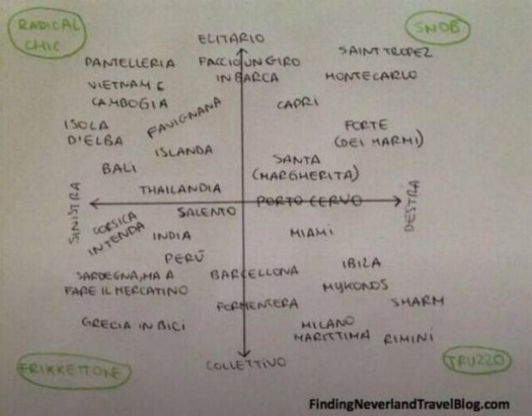 RADICAL
CHIC
ELITARIO
SNOB
PANTELLERIA
FACCIO UN GIRO
IN BARCA
SAINT TROPEZ
VIETNAM E
CAMBOGIA
MONTECARLO
FAVIGNANA
CAPRI
ISOLA
D'ELBA
FORTE
(DEI MARMI)
ISLANDA
BALI
SANTA
(MARGHERITA)
THAILANDIA
SINISTRA
PORTO CERVO
DESTRA
SALENTO
CORSICA
IN TENDA
INDIA
MIAMI
PERÙ
SARDEGNA, MA A
FARE IL MERCATINO
BARCELLONA
IBIZA
MYKONOS
FORMENTERA
SHARM
GRECIA IN BICI
MILANO
MARITTIMA
RIMINI
FRIKKETTONE
COLLETTIVO
TRUZZO
FindingNeverlandTravelBlog.com